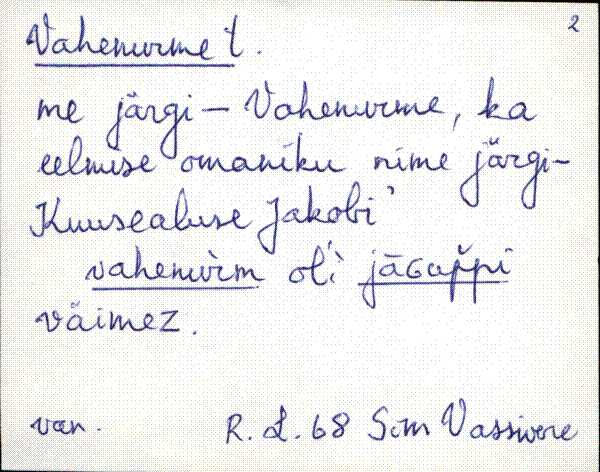 2
Vahenurme t.
me järgi – Vahenurme, ka
eelmise omaniku nime järgi –
Kuusealuse Jakobi'
vahenùrm ol'ì jāGap̌pi
väimez.
van. R. L. 68 Sim Vassivere